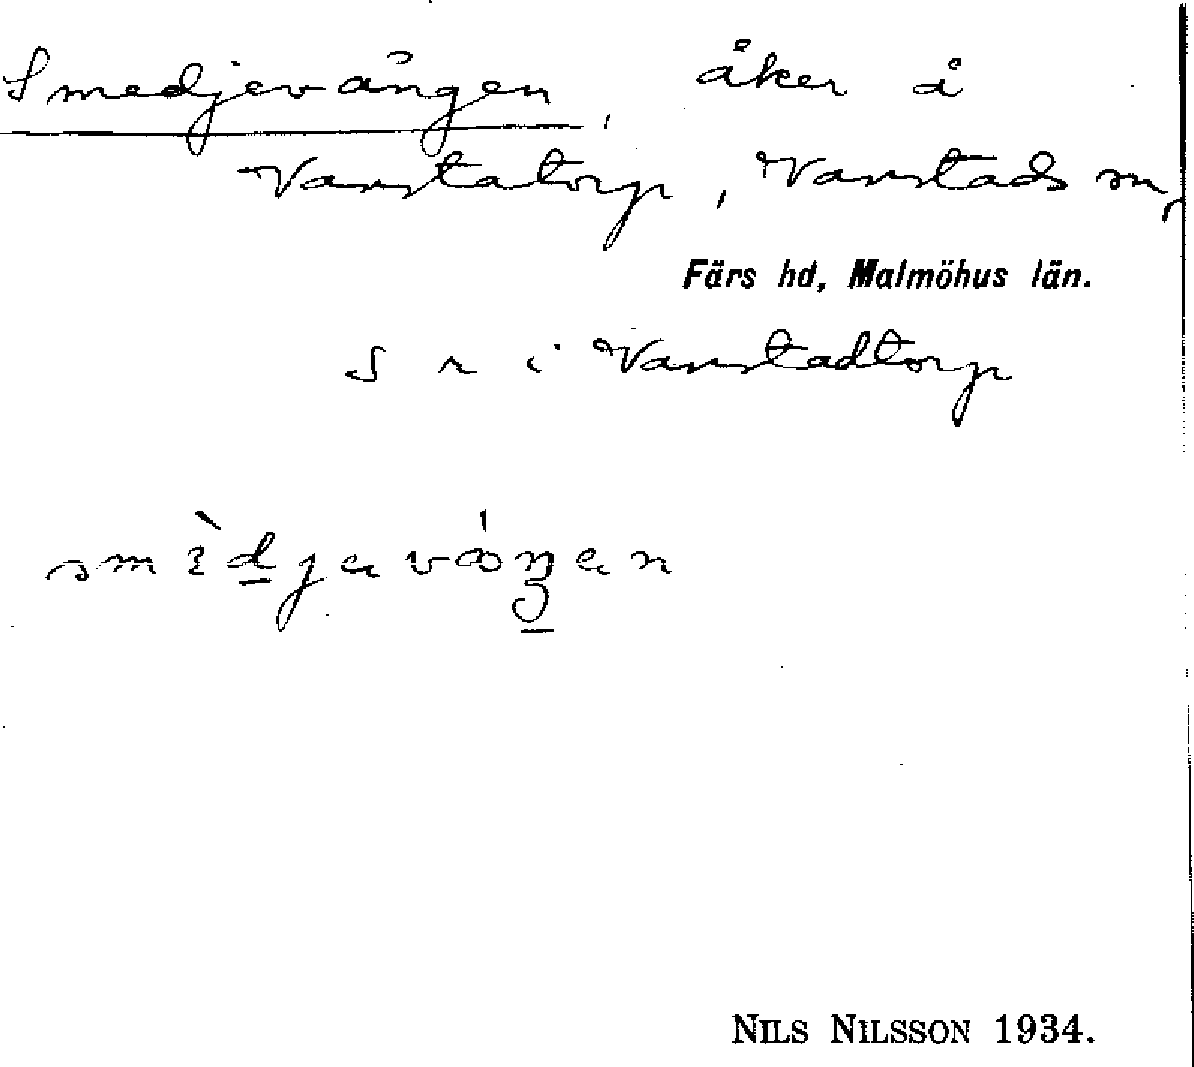 Smedjevången, åker å
Vanstatorp, Vanstads sn,
Färs hd, Malmöhus län.
S r i Vanstadtorp
NILS NILSSON 1934.